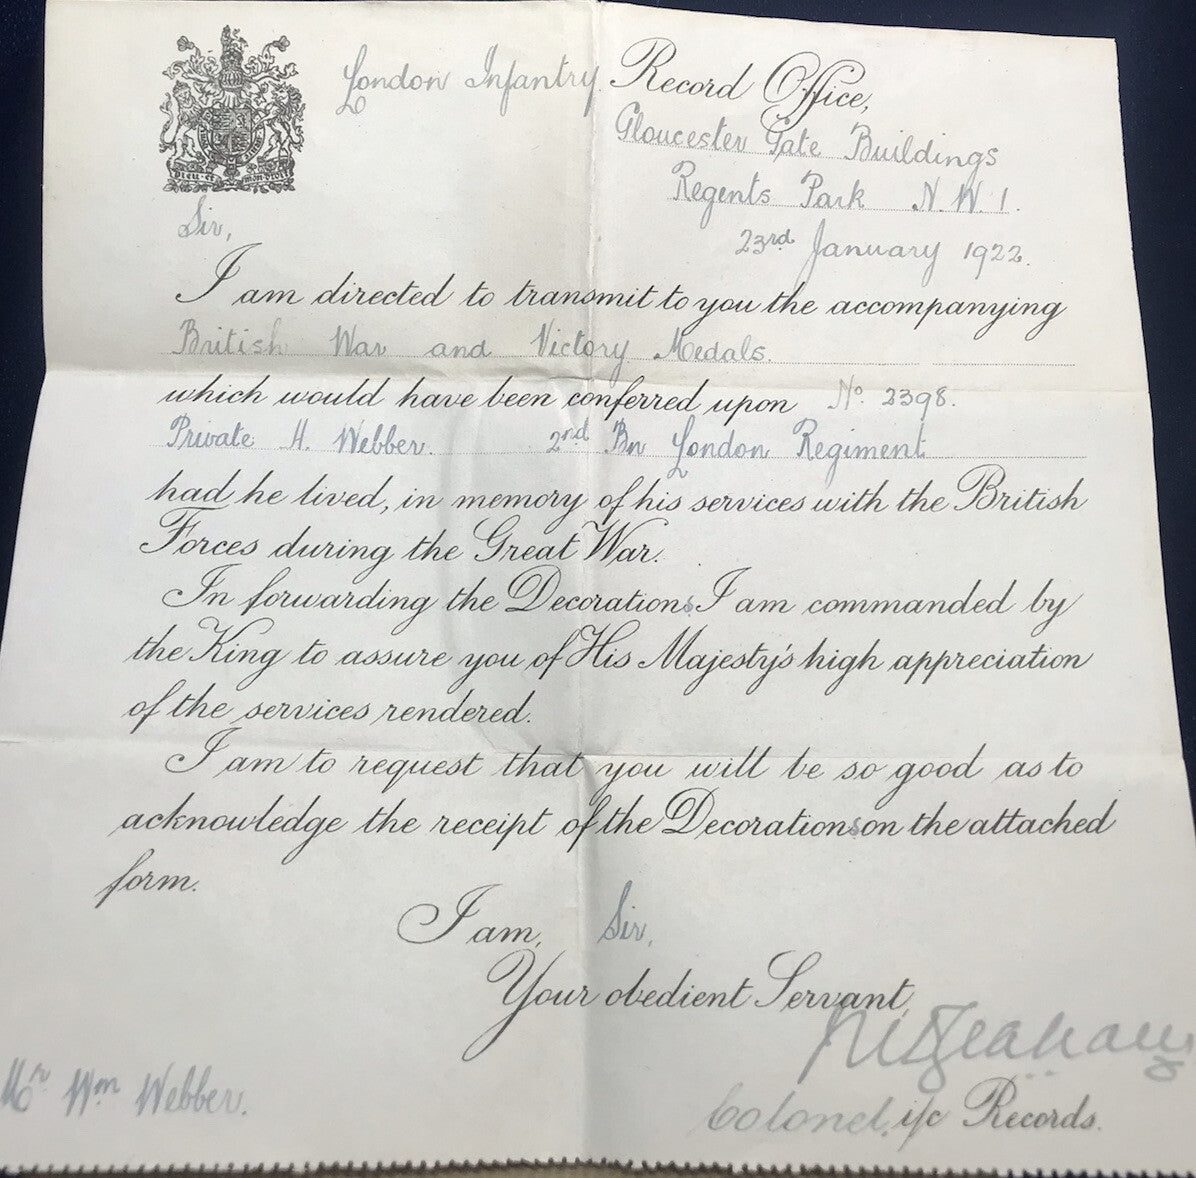 London Infantry Record Office,
Gloucester Gate Buildings
Regents Park N.W.1.
23rd January 1922.
Dieu et mon droit
Sir,
I am directed to transmit to you the accompanying
British War and Victory Medals.
which would have been conferred upon No. 2398.
Private H. Webber. 2nd Bn London Regiment
had he lived, in memory of his services with the British
Forces during the Great War.
In forwarding the Decorations I am commanded by
the King to assure you of His Majesty's high appreciation
of the services rendered.
I am to request that you will be so good as to
acknowledge the receipt of the Decorations on the attached
form.
I am, Sir,
Your obedient Servant,
Colonel, i/c Records.
Mr Wm Webber.